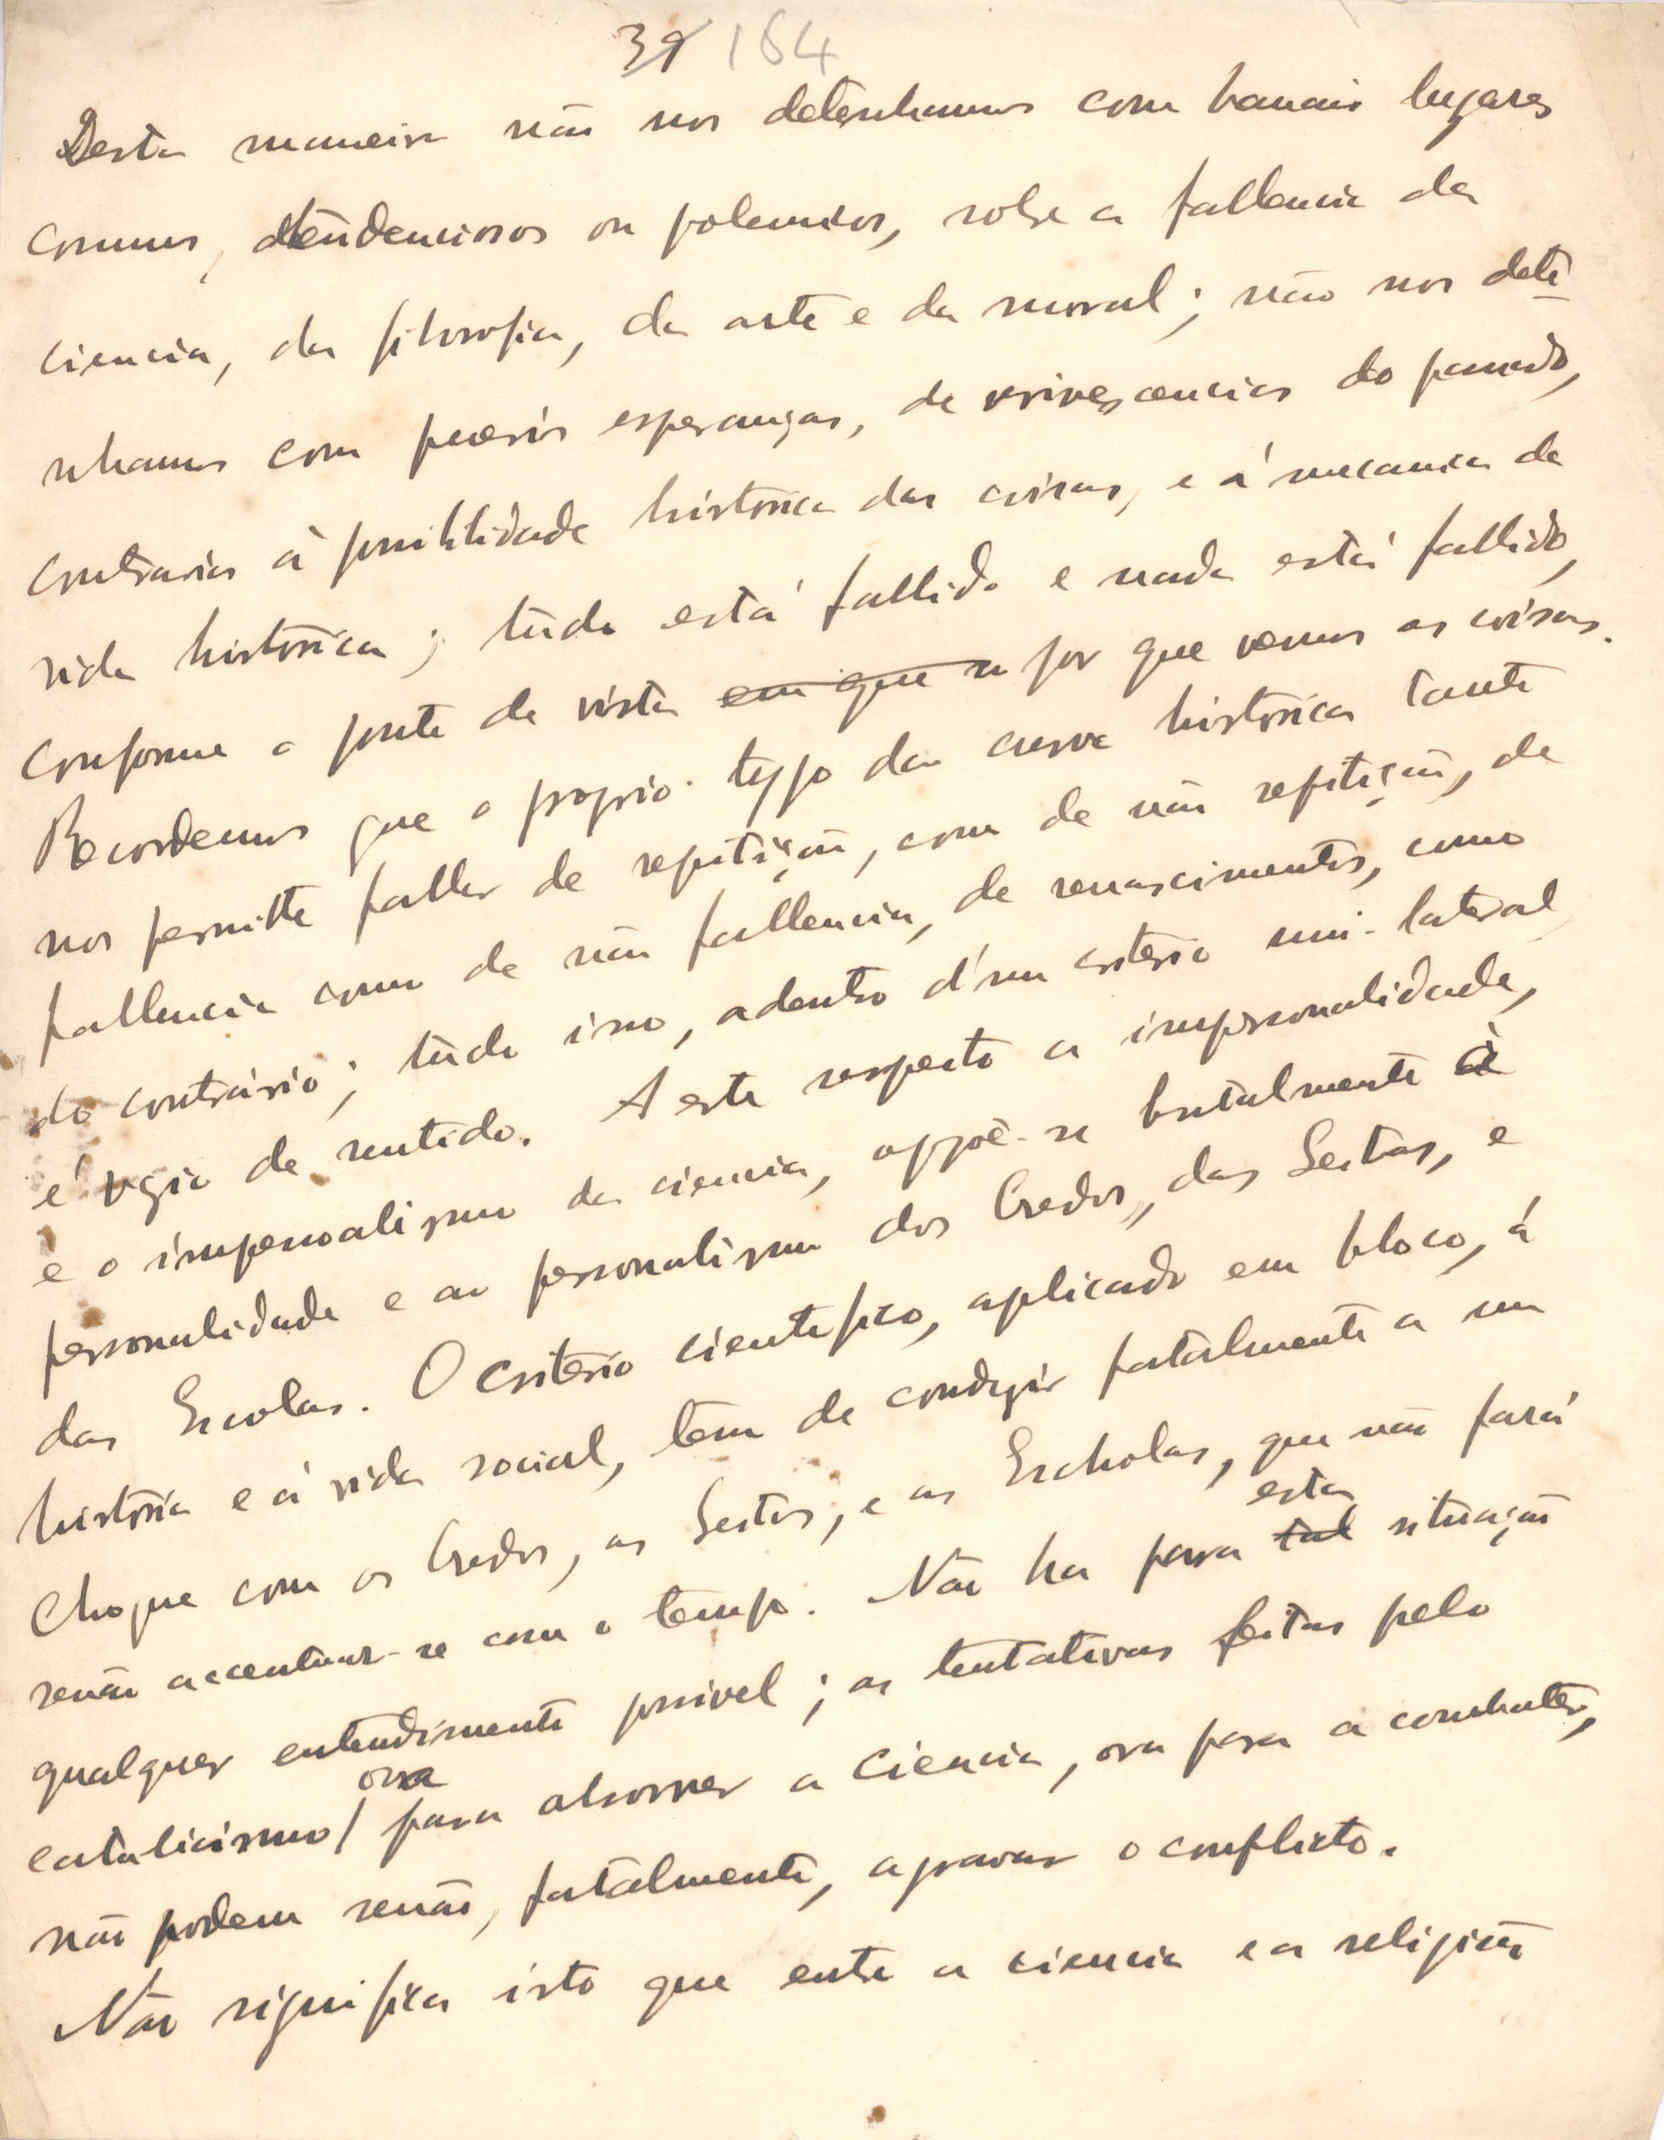 39 164
Desta maneira não nos detenhamos com banais lugares
comuns, tendenciosos ou polemicos, sobre a fallencia da
ciencia, da filosofia, da arte e da moral; não nos dete-
nhamos com pueris esperanças, de revivescencias do passado,
contrarias á possibilidade historica das coisas, e á mecanica da
vida historica; tudo está fallido e nada está fallido,
conforme o ponto de vista em que se por que vemos as coisas.
Recordemos que o proprio typo da curva historica tanto
nos permitte fallar de repetição, como de não repetição, de
fallencia como de não fallencia, de renascimentos, como
do contrário; tudo isso, adentro d'um criterio uni-lateral,
é vazio de sentido. A este respeito a impersonalidade,
e o impessoalismo da ciencia, oppõe-se brutalmente á
personalidade e ao personalismo dos Credos, das Seitas, e
das Escolas. O criterio cientifico, aplicado em bloco, á
história e á vida social, tem de conduzir fatalmente a um
choque com os Credos, as Seitas, e as Escholas, que não fará
senão accentuar-se com o tempo. Não ha para tal esta situação
qualquer entendimento possivel; as tentativas feitas pelo
catolicismo, ora para absorver a ciencia, ora para a combater,
não podem senão, fatalmente, agravar o conflicto.
Não significa isto que entre a ciencia e a religião